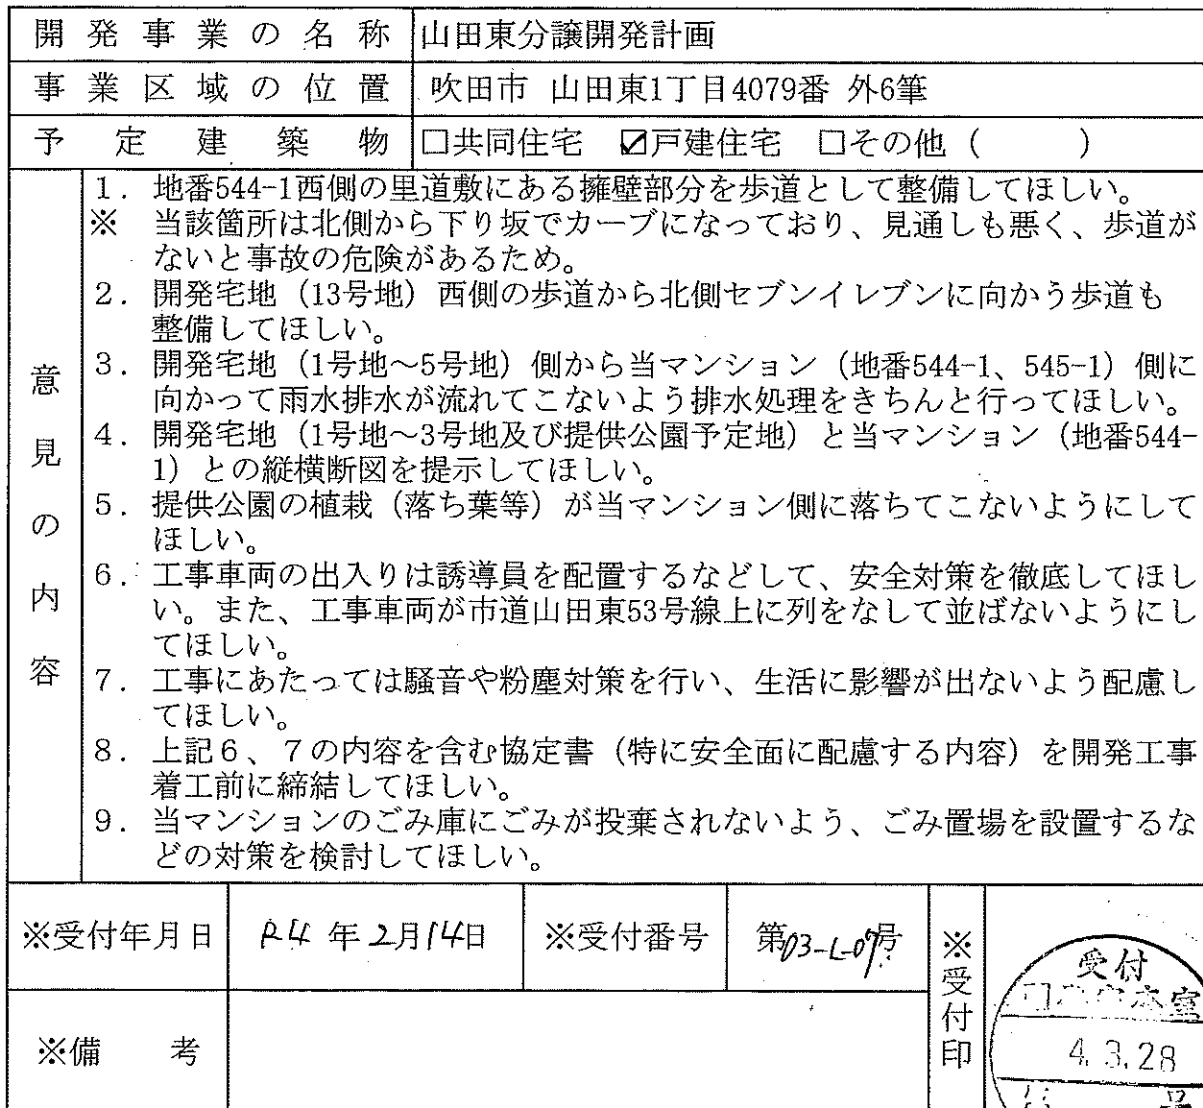 開発事業の名称 山田東分譲開発計画
事業区域の位置 吹田市 山田東1丁目4079番 外6筆
予定建築物 □共同住宅 ☑戸建住宅 □その他（　　　）
意見の内容
1．地番544-1西側の里道敷にある擁壁部分を歩道として整備してほしい。
※ 当該箇所は北側から下り坂でカーブになっており、見通しも悪く、歩道が
ないと事故の危険があるため。
2．開発宅地（13号地）西側の歩道から北側セブンイレブンに向かう歩道も
整備してほしい。
3．開発宅地（1号地～5号地）側から当マンション（地番544-1、545-1）側に
向かって雨水排水が流れてこないよう排水処理をきちんと行ってほしい。
4．開発宅地（1号地～3号地及び提供公園予定地）と当マンション（地番544-
1）との縦横断図を提示してほしい。
5．提供公園の植栽（落ち葉等）が当マンション側に落ちてこないようにして
ほしい。
6．工事車両の出入りは誘導員を配置するなどして、安全対策を徹底してほし
い。また、工事車両が市道山田東53号線上に列をなして並ばないようにし
てほしい。
7．工事にあたっては騒音や粉塵対策を行い、生活に影響が出ないよう配慮し
てほしい。
8．上記6、7の内容を含む協定書（特に安全面に配慮する内容）を開発工事
着工前に締結してほしい。
9．当マンションのごみ庫にごみが投棄されないよう、ごみ置場を設置するな
どの対策を検討してほしい。
※受付年月日 R4年2月14日 ※受付番号 第03-L-07号
※受付印
受付
4.3.28
号
※備考